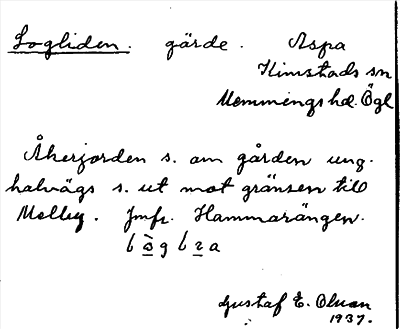 Logliden. gärde. Aspa
Kimstads sn
Memmings hd. Ögl
Åkerjorden s. om gården ung.
halvägs s. ut mot gränsen till
Melby. Jmfr. Hammarängen.
Gustaf E. Olsson
1937.